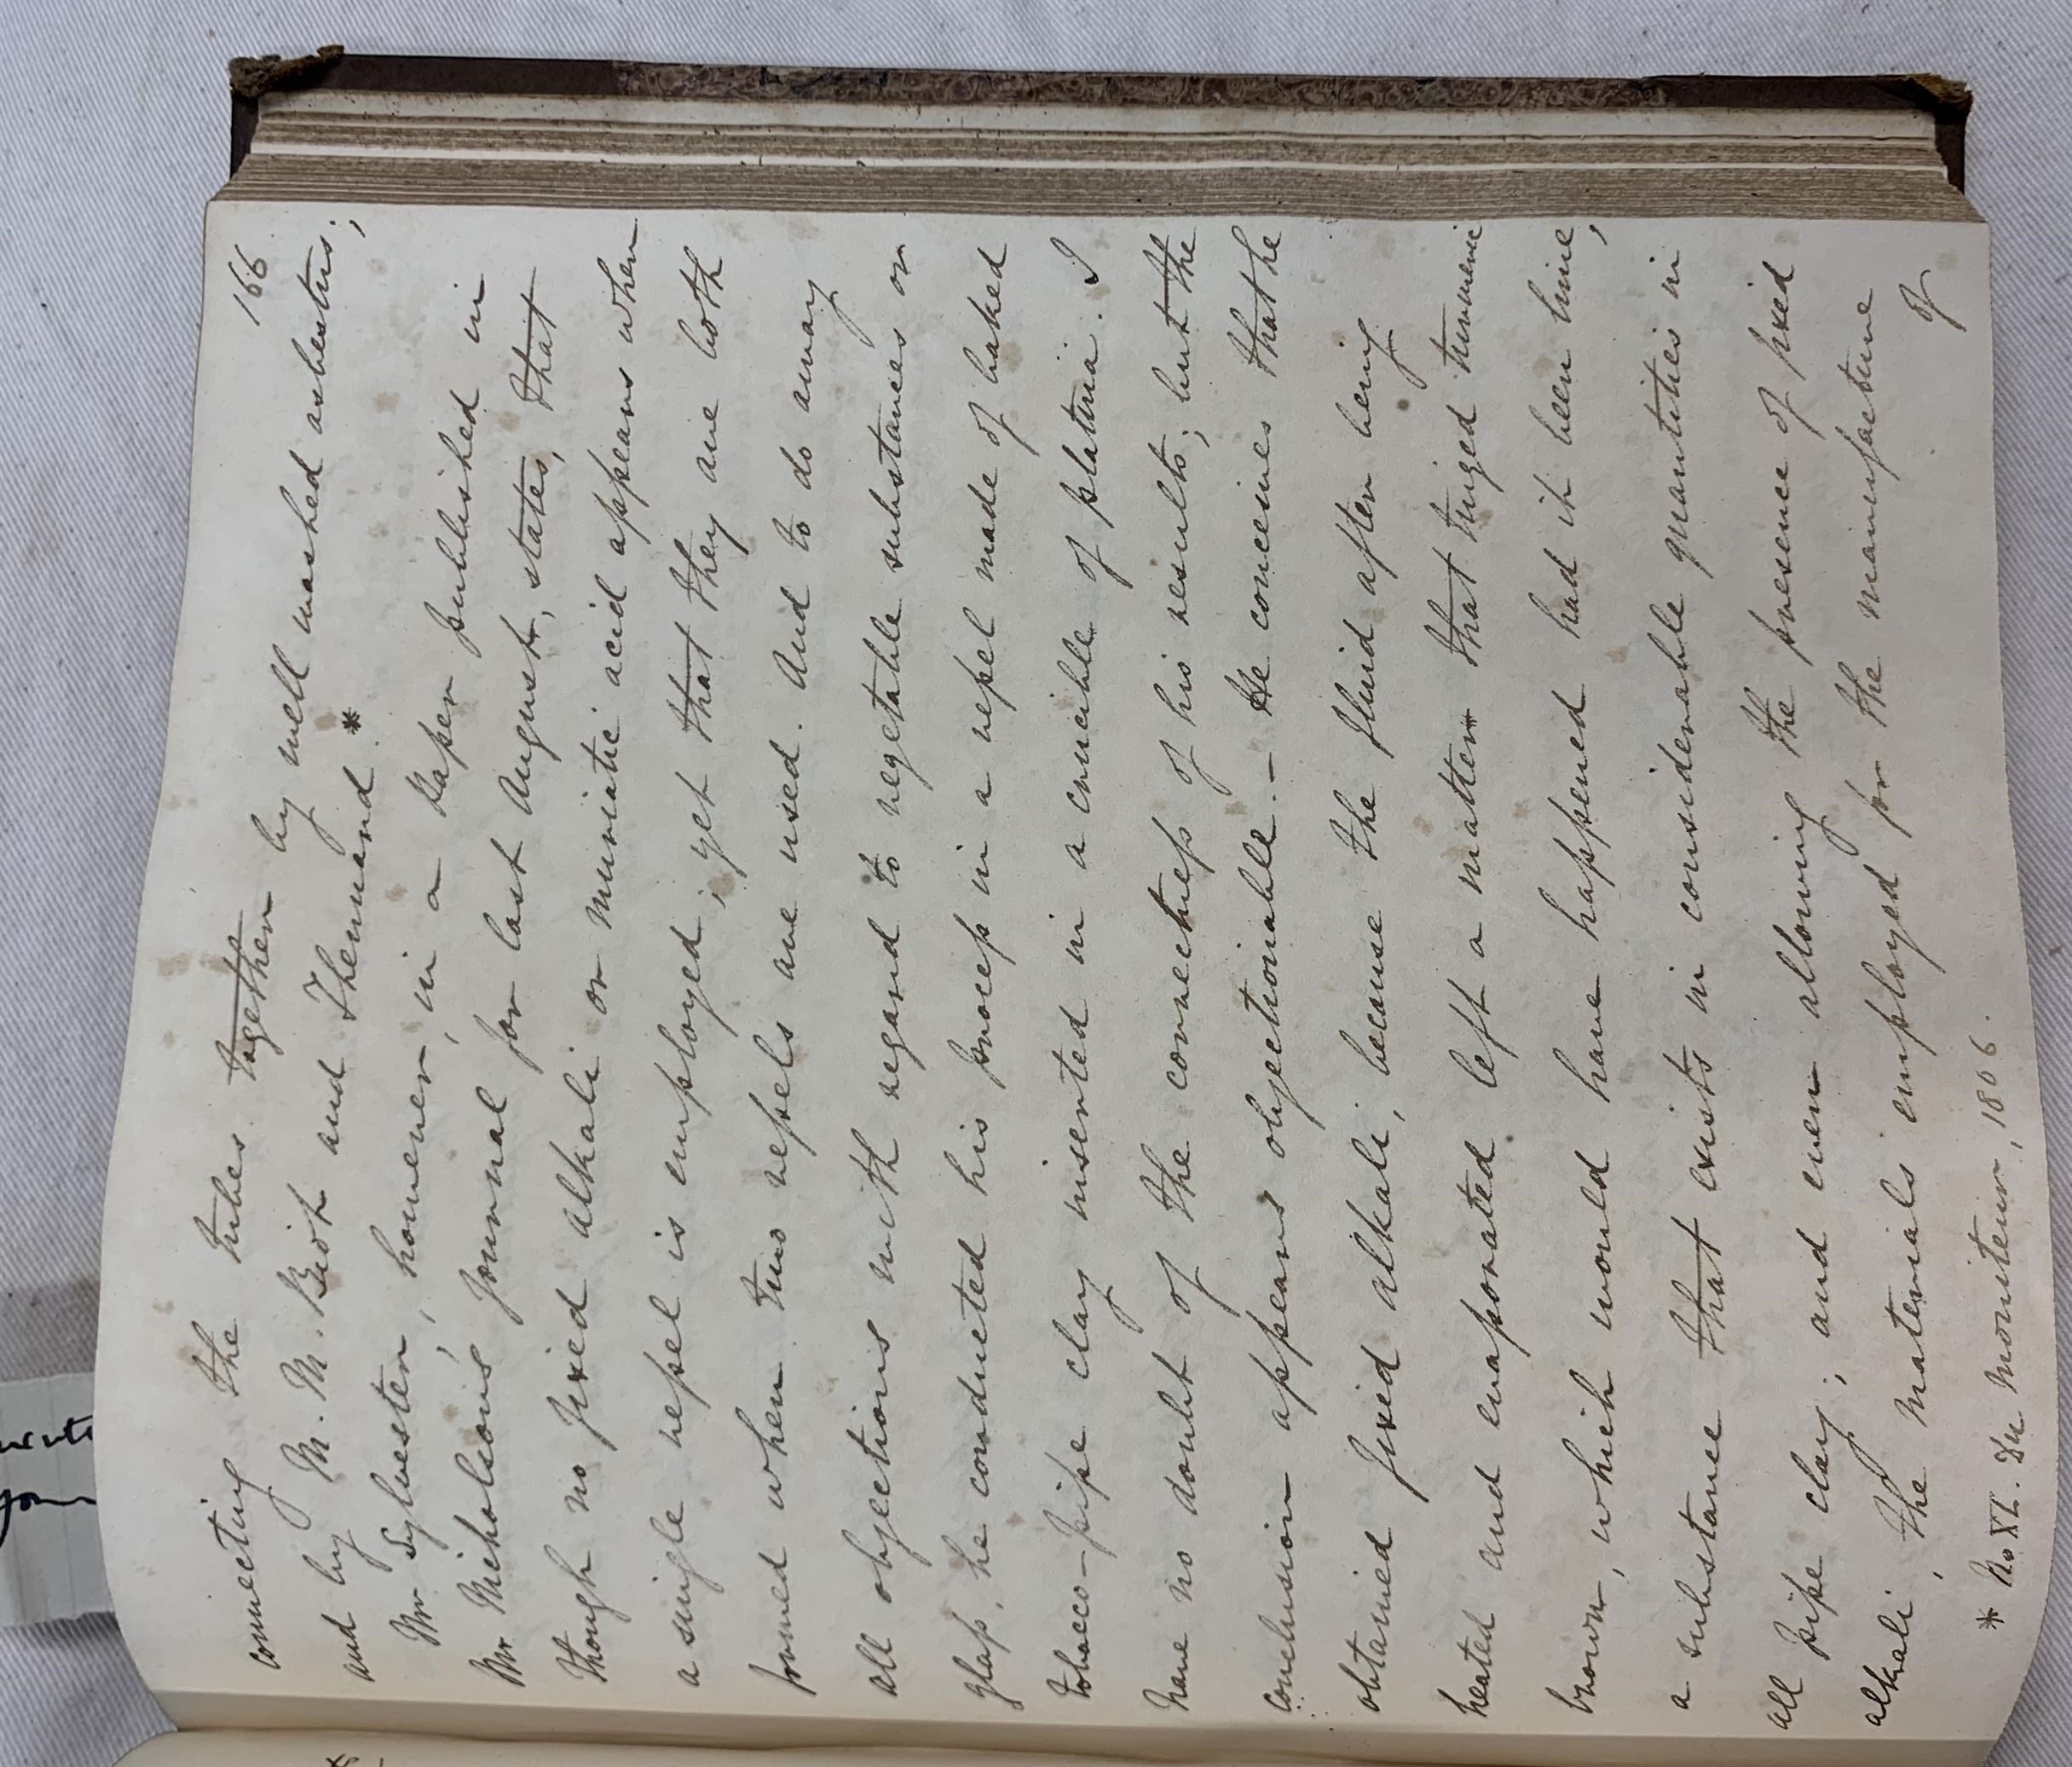 166
connecting the tubes together by well washed asbestus;
and by M. M. Biot and Thenard.*
Mr Sylvester, however, in a Paper published in
Mr Nicholsons, Journal for last August, states, that
though no fixed alkali or muriatic acid appears when
a single vessel is employed; yet that they are both
formed when two vessels are used. And to do away
all objections with regard to vegetable substances or
glass, he conducted his process in a vessel made of baked
tobacco-pipe clay inserted in a crucible of platina. I
have no doubt of the correctness of his results; but the
conclusion appears objectionable. – He conceives that he
obtained fixed alkali, because the fluid after being
heated and evaporated left a matter that tinged turmeric
brown, which would have happened had it been lime,
a substance that exists in considerable quantities in
all pipe clay; and even allowing the presence of fixed
alkali, the materials employed for the manufacture
of
* No XL. Du Moniteur, 1806.